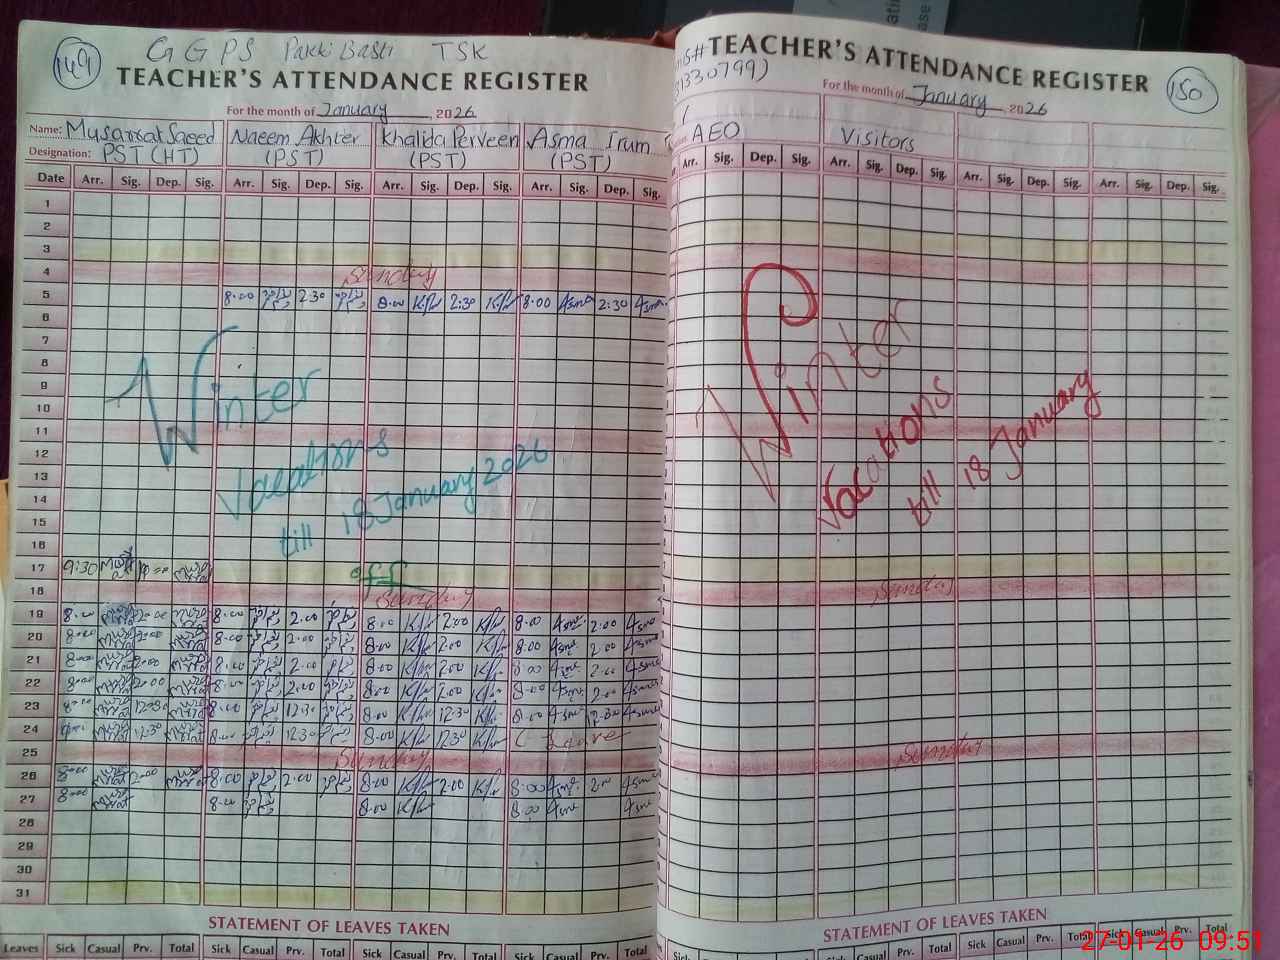 149
G G P S Pakki Basti TSK
TEACHER'S ATTENDANCE REGISTER
For the month of January, 2026
Name: Musarrat Saeed Naeem Akhter Khalida Perveen Asma Irum
Designation: PST (HT) (PST) (PST) (PST)
Date Arr. Sig. Dep. Sig. Arr. Sig. Dep. Sig. Arr. Sig. Dep. Sig. Arr. Sig. Dep. Sig.
1
2
3
4 Sunday
5 8:00 2:30 8:00 K/P 2:30 K/P 8:00 Asma 2:30 Asma
6
7
8
9
10
11
12
13
14
15
16
Winter
Vacations
till 18 January 2026
17 9:30 off
18 Sunday
19 8:00 2:00 8:00 2:00 8:00 K/P 2:00 K/P 8:00 Asma 2:00 Asma
20 8:00 2:00 8:00 2:00 8:00 K/P 2:00 K/P 8:00 Asma 2:00 Asma
21 8:00 2:00 8:00 2:00 8:00 K/P 2:00 K/P 8:00 Asma 2:00 Asma
22 8:00 2:00 8:00 2:00 8:00 K/P 2:00 K/P 8:00 Asma 2:00 Asma
23 8:00 12:30 8:00 12:30 8:00 K/P 12:30 K/P 8:00 Asma 12:30 Asma
24 12:30 8:00 12:30 8:00 K/P 12:30 K/P C Leave
25 Sunday
26 8:00 2:00 8:00 2:00 8:00 K/P 2:00 K/P 8:00 Asma 2:00 Asma
27 8:00 8:00 8:00 K/P 8:00 Asma Asma
28
29
30
31
STATEMENT OF LEAVES TAKEN
Leaves Sick Casual Prv. Total Sick Casual Prv. Total Sick Casual Prv. Total Sick Casual Prv. Total
TEACHER'S ATTENDANCE REGISTER
150
For the month of January, 2026
AEO Visitors
Arr. Sig. Dep. Sig. Arr. Sig. Dep. Sig. Arr. Sig. Dep. Sig. Arr. Sig. Dep. Sig.
Winter
Vacations
till 18 January
Sunday
Sunday
STATEMENT OF LEAVES TAKEN
Sick Casual Prv. Total Sick Casual Prv. Total Sick Casual Prv. Total Sick Casual Prv. Total
27-01-26 09:51